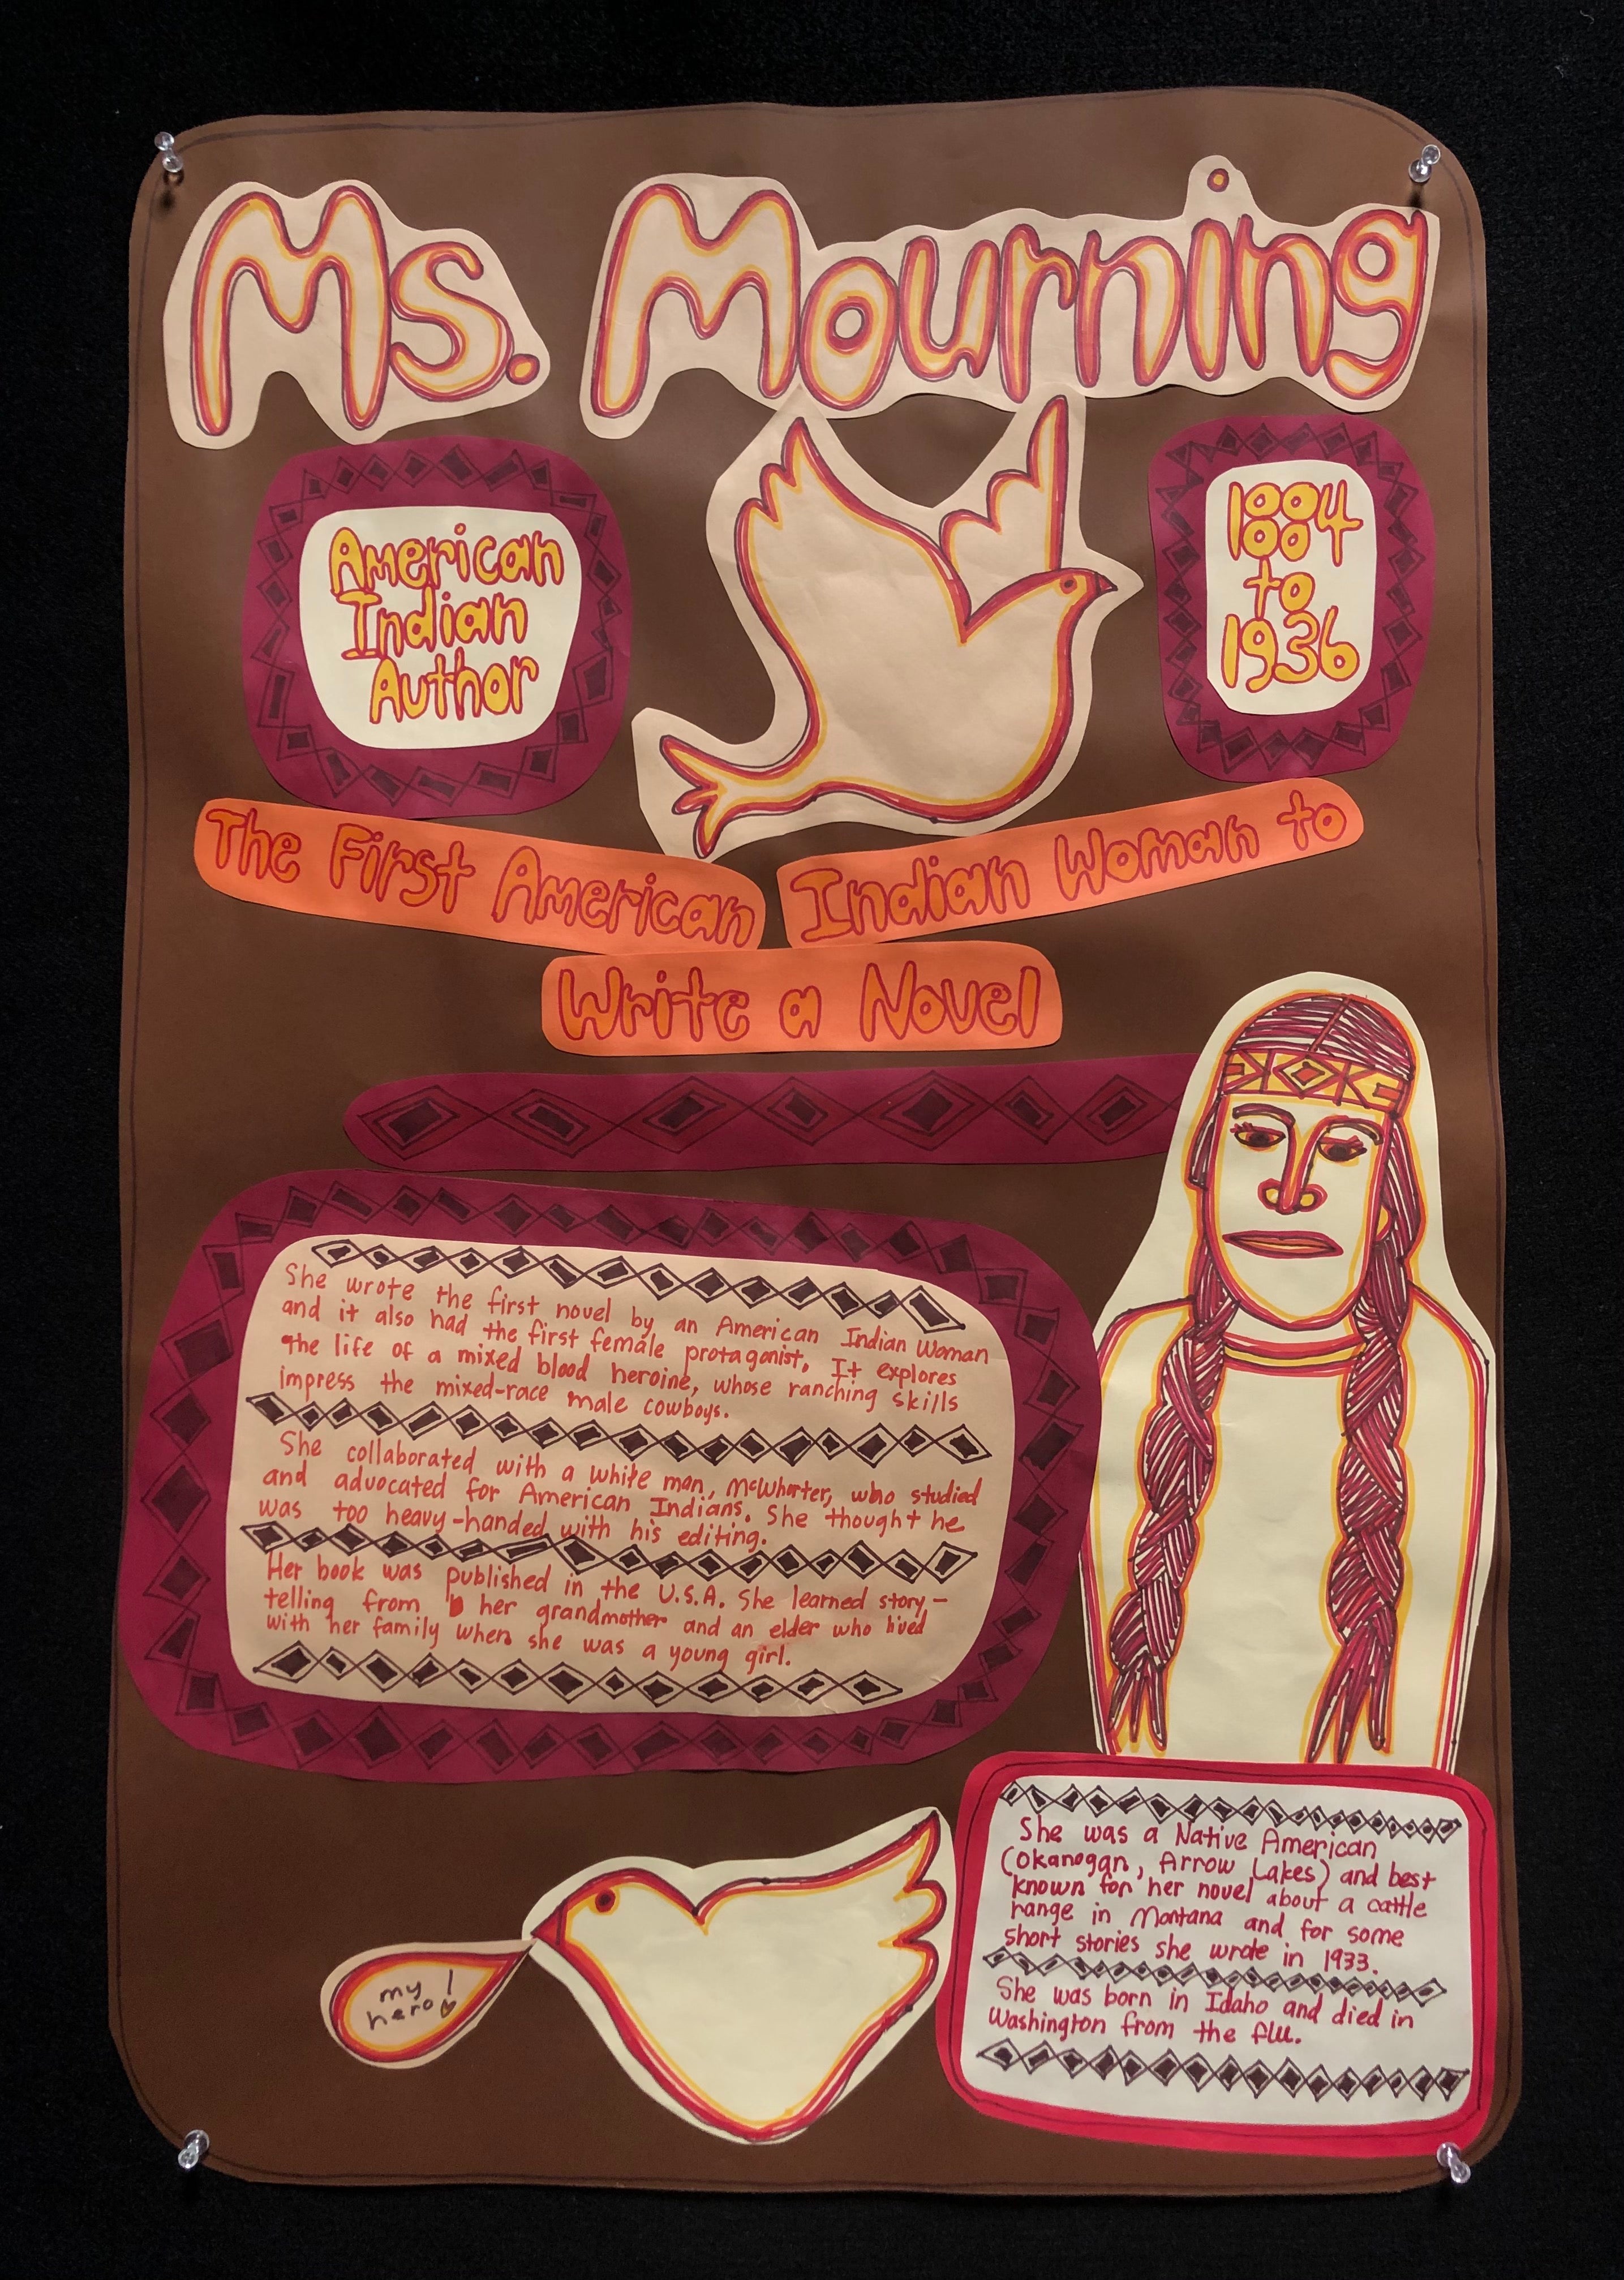 Ms. Mourning
American
Indian
Author
1884
to
1936
The First American Indian Woman to
Write a Novel
She wrote the first novel by an American Indian Woman
and it also had the first female protagonist. It explores
the life of a mixed blood heroine, whose ranching skills
impress the mixed-race male cowboys.
She collaborated with a white man, McWhorter, who studied
and advocated for American Indians. She thought he
was too heavy-handed with his editing.
Her book was published in the U.S.A. She learned story-
telling from her grandmother and an elder who lived
with her family when she was a young girl.
my
hero!
She was a Native American
(Okanogan, Arrow Lakes) and best
known for her novel about a cattle
range in Montana and for some
short stories she wrote in 1933.
She was born in Idaho and died in
Washington from the flu.